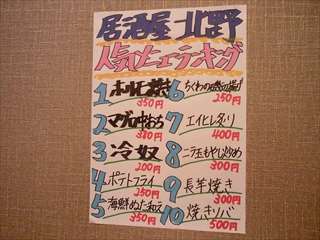 居酒屋 北野
人気メニューランキング
1 ホルモン焼き
350円
2 マグロ中おち
380円
3 冷奴
200円
4 ポテトフライ
250円
5 海鮮ぬた和え
350円
6 ちくわの磯辺揚げ
250円
7 エイヒレ炙り
400円
8 ニラ玉もやし炒め
300円
9 長芋焼き
300円
10 焼きソバ
500円